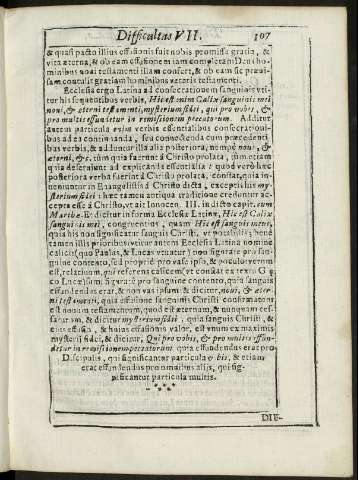 Difficultas VII. 107
& quasi pacto illius effusionis fuit nobis promissa gratia, &
vita æterna, & ob eam effusionem iam completam Deus ho
minibus noui testamenti illam confert, & ob eam sic præui-
sam contulit gratiam hominibus veteris testamenti.
Ecclesia ergo Latina ad consecrationem sanguinis vti-
tur his sequentibus verbis, Hic est enim Calix sanguinis mei
noui, & æterni testamenti, mysterium fidei, qui pro vobis, &
pro multis effundetur in remissionem peccatorum. Additur
autem particula enim verbis essentialibus consecrationi-
bus ad ea continuanda, seu connectenda cum præcedenti
bus verbis, & adduntur illa alia posteriora, nempè noui, &
æterni, &c. tùm quia fuerint à Christo prolata, tùm etiam
quia deseruiunt ad explicanda essentialia: quod verò hæc
posteriora verba fuerint à Christo prolata, constat, quia in-
ueniuntur in Euangelistis à Christo dicta, exceptis his my-
sterium fidei: hæc tamen antiqua traditione creduntur ac-
cepta esse à Christo, vt ait Innocen. III. in dicto capit. cum
Marthæ. Et dicitur in forma Ecclesiæ Latinæ, Hic est Calix
sanguinis mei, congruentius, quam Hic est sanguis meus,
quia non his significatur sanguis Christi, vt potabilis; benè
tamen illis prioribus: vtitur autem Ecclesia Latina nomine
calicis (quo Paulus, & Lucas vtuntur) non figuratè pro san-
guine contento, sed propriè pro vase ipso, &
est, relatiuum, qui referens calicem (vt constat ex textu G
co Lucæ) sumi figuratè pro sanguine contento, quia sanguis
effundendus erat, & non vas ipsum: & dicitur, noui, & æter
ni testamenti, quia effusione sanguinis Christi confirmatum
est nouum testamentum, quod est æternum, & nunquam ces-
saturum, & dicitur mysterium fidei, quia sanguis Christi, &
eius effusio, & huius effusionis valor, est vnum ex maximis
mysterijs fidei, & dicitur, Qui pro vobis, & pro multis effun-
detur in remissionem peccatorum quia effundendus erat pro
Discipulis, qui significantur particula vobis, & etiam
erat effundendus pro omnibus alijs, qui sig-
nificantur particula multis.
DIF-